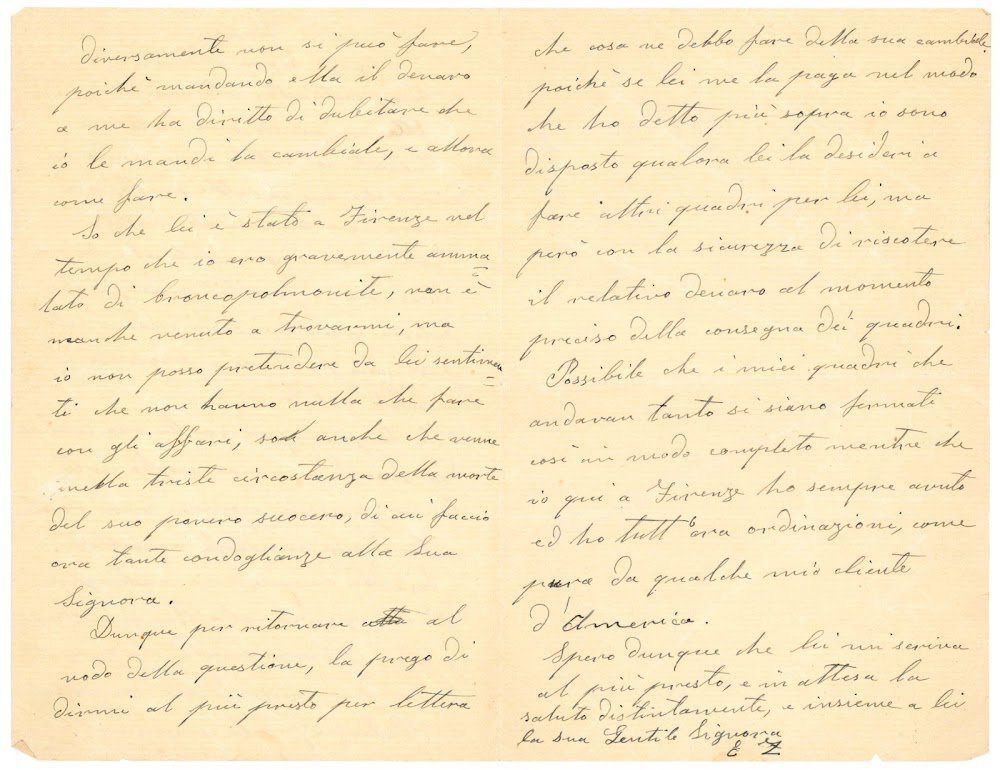 diversamente non si può fare,
poichè mandando ella il denaro
a me ha diritto di dubitare che
io le mandi la cambiale, e allora
come fare.
So che lei è stato a Firenze nel
tempo che io ero gravemente amma=
lato di broncopolmonite, non è
manche venuto a trovarmi, ma
io non posso pretendere da lei sentimen=
ti che non hanno nulla che fare
con gli affari, so anche che venne
nella triste circostanza della morte
del suo povero suocero, di cui faccio
ora tante condoglianze alla Sua
Signora.
Dunque per ritornare al
nodo della questione, la prego di
dirmi al più presto per lettera
che cosa ne debbo fare della sua cambiale.
poichè se lei me la paga nel modo
che ho detto più sopra io sono
disposto qualora lei la desideri a
fare altri quadri per lei, ma
però con la sicurezza di riscotere
il relativo denaro al momento
preciso della consegna dei quadri.
Possibile che i miei quadri che
andavan tanto si siano fermati
così in modo completo mentre che
io qui a Firenze ho sempre avuto
ed ho tutt'ora ordinazioni, come
pure da qualche mio cliente
d'America.
Spero dunque che lei mi scriva
al più presto, e in attesa la
saluto distintamente, e insieme a lei
la sua Gentile Signora
E Z